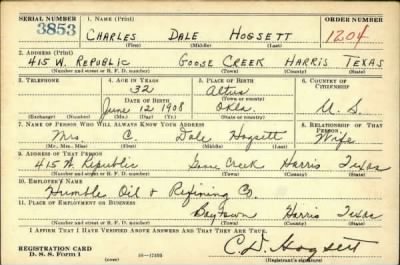 SERIAL NUMBER 1. NAME (Print) ORDER NUMBER
3853 CHARLES DALE HOGSETT 1204
(First) (Middle) (Last)
2. ADDRESS (Print)
415 W. REPUBLIC GOOSE CREEK HARRIS TEXAS
(Number and street or R. F. D. number) (Town) (County) (State)
3. TELEPHONE 4. AGE IN YEARS 5. PLACE OF BIRTH 6. COUNTRY OF CITIZENSHIP
32 Altus
DATE OF BIRTH (Town or county)
June 12 1908 Okla. U. S.
(Exchange) (Number) (Mo.) (Day) (Yr.) (State or country)
7. NAME OF PERSON WHO WILL ALWAYS KNOW YOUR ADDRESS 8. RELATIONSHIP OF THAT PERSON
Mrs. C. Dale Hogsett Wife
(Mr., Mrs., Miss) (First) (Middle) (Last)
9. ADDRESS OF THAT PERSON
415 W. Republic Goose Creek Harris Texas
(Number and street or R. F. D. number) (Town) (County) (State)
10. EMPLOYER'S NAME
Humble Oil & Refining Co.
11. PLACE OF EMPLOYMENT OR BUSINESS
Baytown Harris Texas
(Number and street or R. F. D. number) (Town) (County) (State)
I AFFIRM THAT I HAVE VERIFIED ABOVE ANSWERS AND THAT THEY ARE TRUE.
REGISTRATION CARD C. D. Hogsett
D. S. S. Form 1 (over) 16—17105 (Registrant's signature)